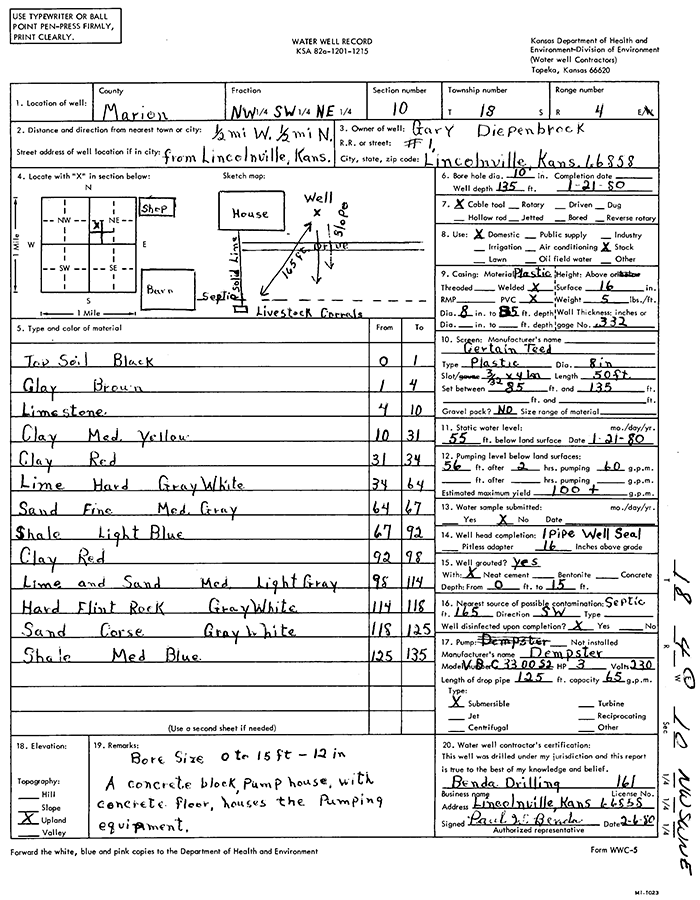 USE TYPEWRITER OR BALL
POINT PEN-PRESS FIRMLY,
PRINT CLEARLY.
WATER WELL RECORD
KSA 82a-1201-1215
Kansas Department of Health and
Environment-Division of Environment
(Water well Contractors)
Topeka, Kansas 66620
1. Location of well: County Marion Fraction NW 1/4 SW 1/4 NE 1/4 Section number 10 Township number T 18 S Range number R 4 E/W
2. Distance and direction from nearest town or city: 1/2 mi W. 1/2 mi N.
Street address of well location if in city: from Lincolnville, Kans.
3. Owner of well: Gary Diepenbrock
R.R. or street: # 1,
City, state, zip code: Lincolnville, Kans. 66858
4. Locate with "X" in section below: Sketch map:
N
NW NE
X
W E
SW SE
S
1 Mile
1 Mile
Shop
House
Well
X
Slope
Drive
165 ft.
Solid Line
Barn
Septic
Livestock Corrals
5. Type and color of material From To
Top Soil Black 0 1
Clay Brown 1 4
Limestone 4 10
Clay Med. Yellow 10 31
Clay Red 31 34
Lime Hard Gray White 34 64
Sand Fine Med. Gray 64 67
Shale Light Blue 67 92
Clay Red 92 98
Lime and Sand Med Light Gray 98 114
Hard Flint Rock Gray White 114 118
Sand Corse Gray White 118 125
Shale Med Blue 125 135
(Use a second sheet if needed)
6. Bore hole dia. 10 in. Completion date
Well depth 135 ft. 1-21-80
7. X Cable tool Rotary Driven Dug
Hollow rod Jetted Bored Reverse rotary
8. Use: X Domestic Public supply Industry
Irrigation Air conditioning X Stock
Lawn Oil field water Other
9. Casing: Material Plastic Height: Above or
Threaded Welded X Surface 16 in.
RMP PVC X Weight 5 lbs./ft.
Dia. 8 in. to 85 ft. depth Wall Thickness: inches or
Dia. in. to ft. depth gage No. .332
10. Screen: Manufacturer's name
Certain Teed
Type Plastic Dia. 8 in
Slot/gauze 3/32 x 4 in Length 50 ft.
Set between 85 ft. and 135 ft.
ft. and ft.
Gravel pack? No Size range of material
11. Static water level: mo./day/yr.
55 ft. below land surface Date 1-21-80
12. Pumping level below land surfaces:
56 ft. after 2 hrs. pumping 60 g.p.m.
ft. after hrs. pumping g.p.m.
Estimated maximum yield 100 + g.p.m.
13. Water sample submitted: mo./day/yr.
Yes X No Date
14. Well head completion: 1 Pipe Well Seal
Pitless adapter 16 Inches above grade
15. Well grouted? yes
With: X Neat cement Bentonite Concrete
Depth: From 0 ft. to 15 ft.
16. Nearest source of possible contamination: Septic
ft. 165 Direction SW Type
Well disinfected upon completion? X Yes No
17. Pump: Dempster Not installed
Manufacturer's name Dempster
Model number HP 3 Volts 230
Length of drop pipe 125 ft. capacity 65 g.p.m.
Type:
X Submersible Turbine
Jet Reciprocating
Centrifugal Other
18. Elevation:
Topography:
Hill
Slope
X Upland
Valley
19. Remarks:
Bore Size 0 to 15 ft - 12 in
A concrete block, Pump house, with
concrete floor, houses the Pumping
equipment.
20. Water well contractor's certification:
This well was drilled under my jurisdiction and this report
is true to the best of my knowledge and belief.
Benda Drilling 161
Business name License No.
Address Lincolnville, Kans 66858
Signed Paul Benda Date 2-6-80
Authorized representative
Forward the white, blue and pink copies to the Department of Health and Environment
Form WWC-5
MI-1023
T 18 R 4 W Sec 10 1/4 1/4 1/4 NW SW NE